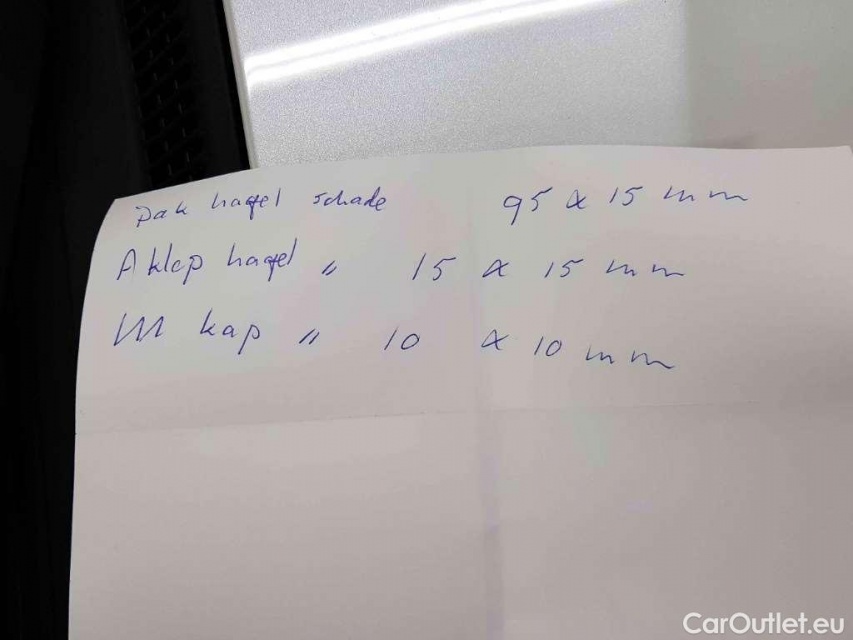 Dak hagel schade 95 a 15 mm
Aklep hagel " 15 a 15 mm
M kap " 10 a 10 mm
CarOutlet.eu